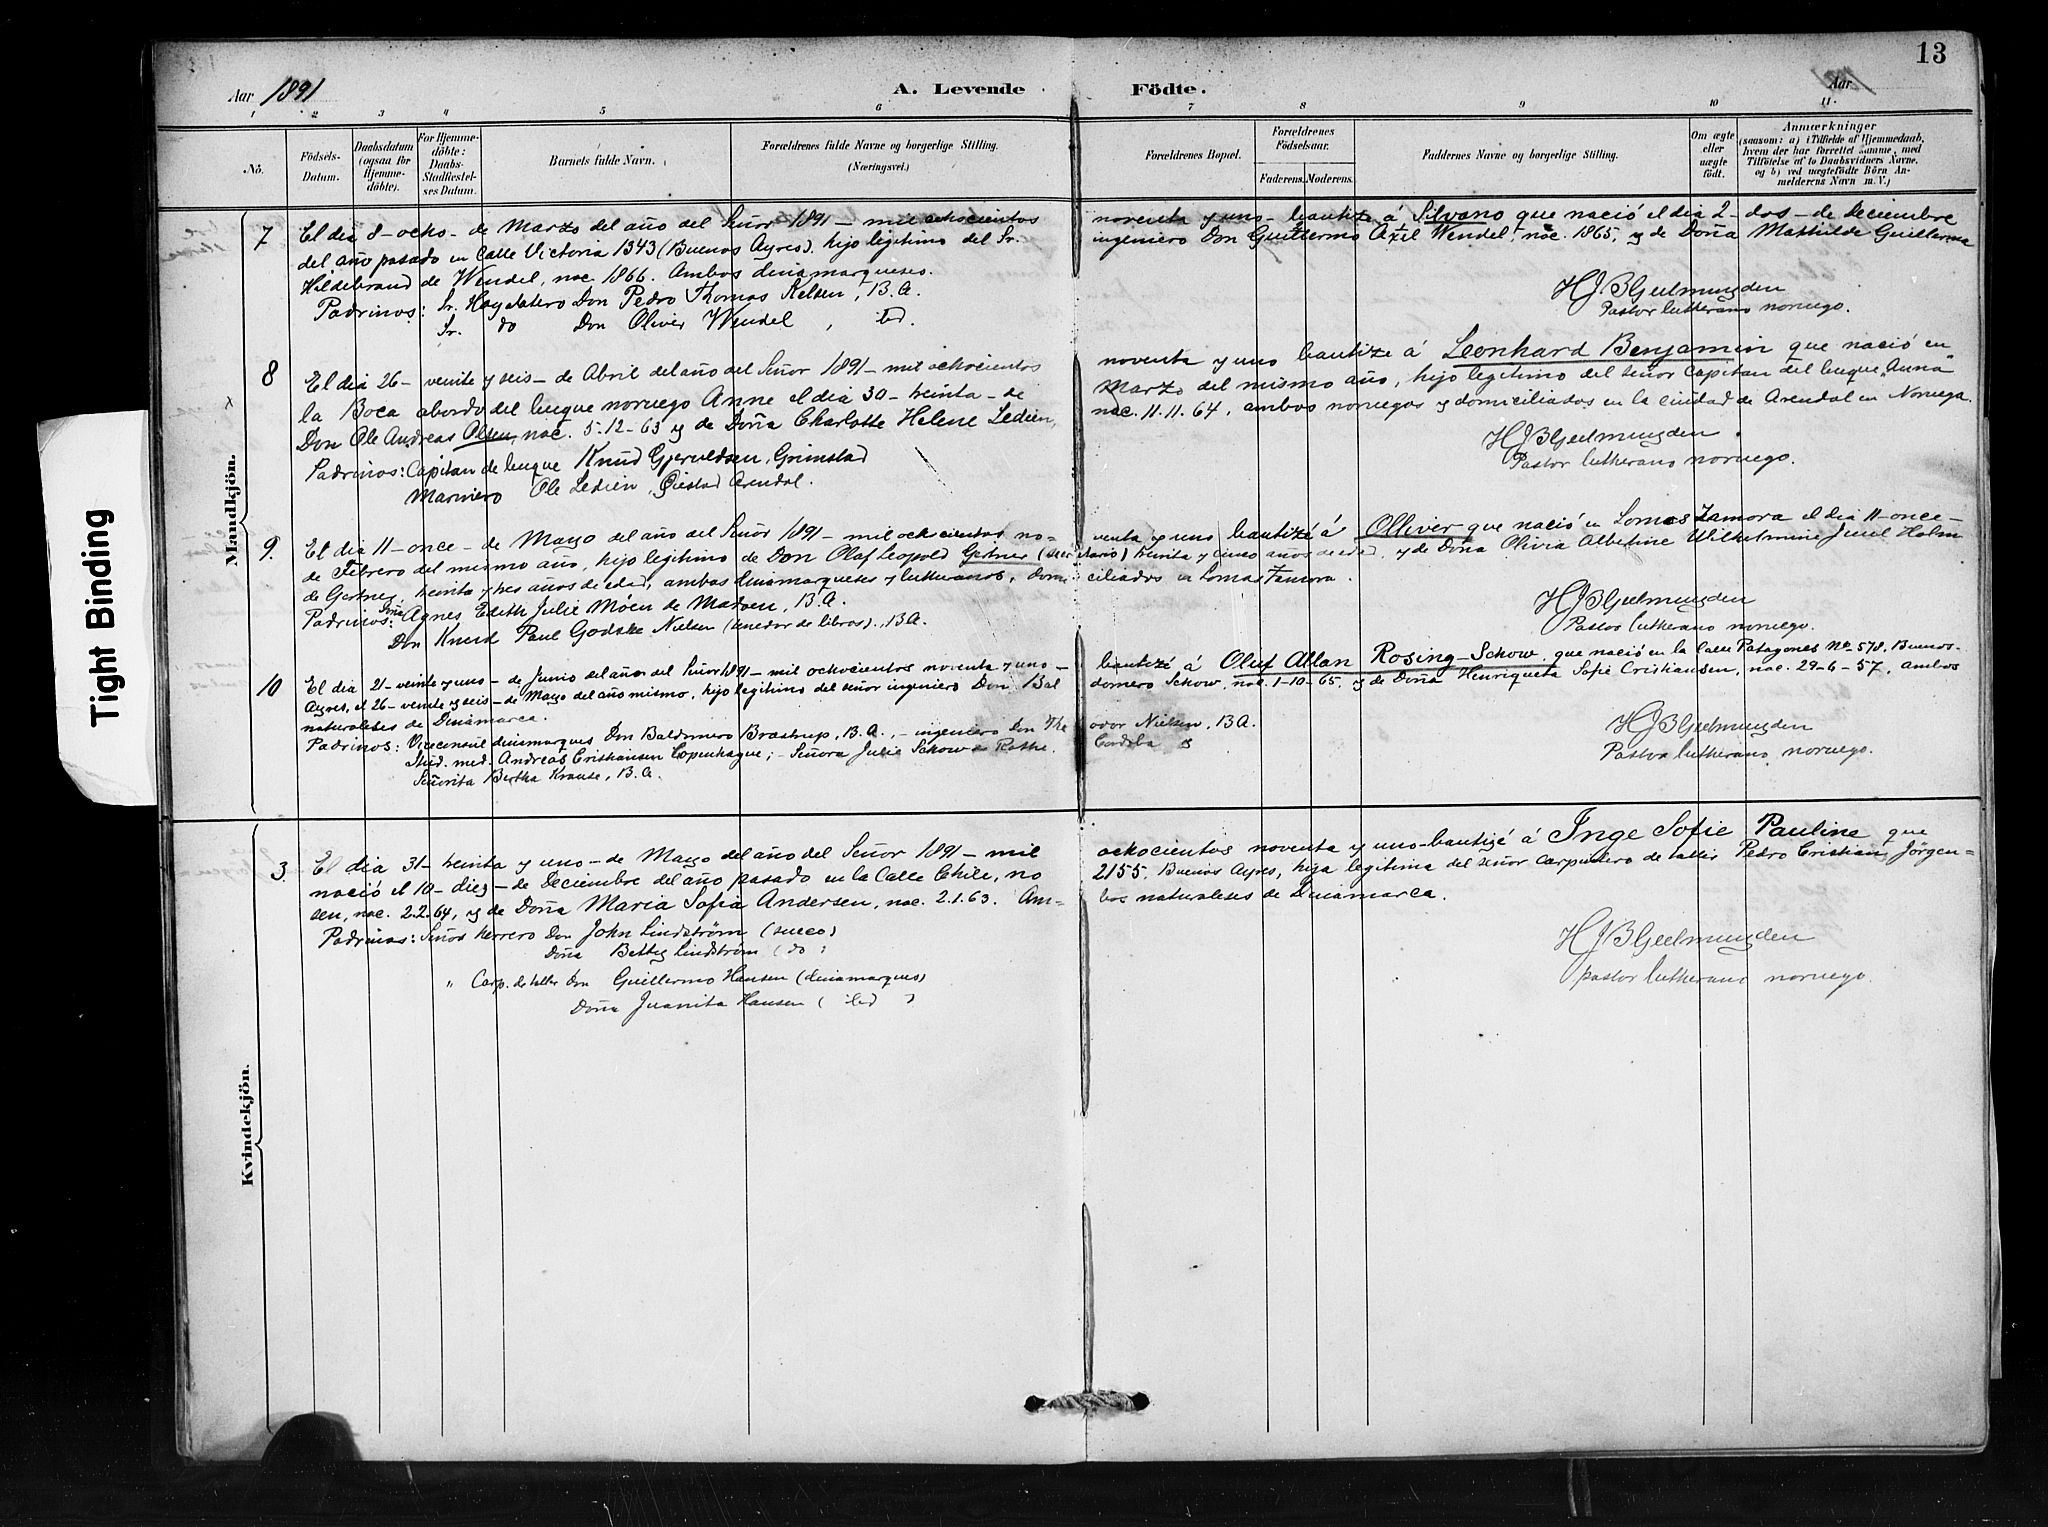 13
Aar 1891
A. Levende Födte.
Aar
1 2 3 4 5 6 7 8 9 10 11
Nó.
Födsels-Datum.
Daabsdatum (ogsaa for Hjemme-döbte).
For Hjemme-döbte: Daabs-Stadfæstel-ses Datum.
Barnets fulde Navn.
Forældrenes fulde Navne og borgerlige Stilling. (Næringsvei.)
Forældrenes Bopæl.
Forældrenes Födselsaar.
Faderens. Moderens.
Faddernes Navne og borgerlige Stilling.
Om ægte eller uægte födt.
Anmærkninger (saasom: a) i Tilfælde af Hjemmedaab, hvem der har forrettet samme, med Tilföielse af to Daabsvidners Navne, og b) ved uægtefödte Börn An-melderens Navn m. V.)
Tight Binding
Mandkjön.
7 El dia 8 - ocho - de Marzo del año del Señor 1891 - mil ochocientos noventa y uno - bautize á Silvano que nació el dia 2 - dos - de Deciembre
del año pasado en Calle Victoria 1343 (Buenos Ayres). hijo legitimo del Sr. ingeniero Don Guillermo Axel Wendel, nac. 1865, y de Doña Mathilde Guillerma
Hildebrand de Wendel, nac. 1866. Ambos dinamarqueses.
Padrinos: Sr. Don Pedro Thomas Kelsen, B.A.
Sr. do Don Oliver Wendel, id.
HJBGeelmuyden
Pastor lutherano noruego.
8 El dia 26 - veinte y seis - de Abril del año del Señor 1891 - mil ochocientos noventa y uno bautize á Leonhard Benjamin que nació en
la Boca abordo del buque noruego Anne el dia 30 - treinta - de Marzo del mismo año, hijo legitimo del señor Capitan del buque "Anna"
Don Ole Andreas Olsen, nac. 5-12-63 y de Doña Charlotte Helene Ledien, nac. 11.11.64, ambos noruegos y domiciliados en la ciudad de Arendal en Noruega.
Padrinos: Capitan de buque Knud Gjeruldsen, Grimstad
Marinero Ole Ledien, Öiestad Arendal.
HJBGeelmuyden.
Pastor lutherano noruego.
x
9. El dia 11 - once - de Mayo del año del Señor 1891 - mil ochocientos no-venta y uno bautizé á Olliver que nació en Lomas Zamora el dia 11 - once -
de Febrero del mismo año, hijo legitimo de Don Olaf Leopold Gertner treinta y cinco años de edad, y de Doña Olivia Albetine Wilhelmine Juul Holm
de Gertner, treinta y tres años de edad, ambos dinamarqueses y lutheranos, domi-ciliados en Lomas Zamora.
Padrinos: Doña Agnes Edith Julie Móen de Madsen, B.A.
Don Knud Paul Godske Nielsen (tenedor de libros), BA.
HJBGeelmuyden
Pastor lutherano noruego.
10 El dia 21 - veinte y uno - de Junio del año del Señor 1891 - mil ochocientos noventa y uno - bautizé á Oluf Allan Rosing-Schow que nació en la Calle Patagones No 578, Buenos-
Ayres, el 26 - veinte y seis - de Mayo del año mismo, hijo legitimo del señor ingeniero Don Bal domero Schow, nac. 1-10-65, y de Doña Henriqueta Sofie Cristiansen, nac. 29-6-57, ambos
naturaleses de Dinamarca.
Padrinos: Viceconsul dinamarques Don Baldmero Brostrup, B.A., - ingeniero Don The odor Nielsen, BA.
Stud. med. Andreas Cristiansen Copenhague; - Señora Julie Schow Rothe. Cordoba
Señorita Bertha Krause, B.A.
HJBGeelmuyden
Pastor lutherano noruego.
Kvindekjön.
3. El dia 31 - treinta y uno - de Mayo del año del Señor 1891 - mil ochocientos noventa y uno - bautizé á Inge Sofie Pauline que
nació el 10 - diez - de Deciembre del año pasado en la Calle Chile, no 2155. Buenos Ayres, hija legitima del señor carpintero de taller Pedro Cristian Jörgen-
sen, nac. 2.2.64, y de Doña Maria Sofia Andersen, nac. 2.1.63. Am-bos naturaleses de Dinamarca.
Padrinos: Señor herrero Don John Lindström (sueco)
Doña Betty Lindström (do)
" Carp. de taller Don Guillermo Hansen (dinamarques)
Doña Juanita Hansen (id)
HJBGeelmuyden
pastor lutherano noruego.